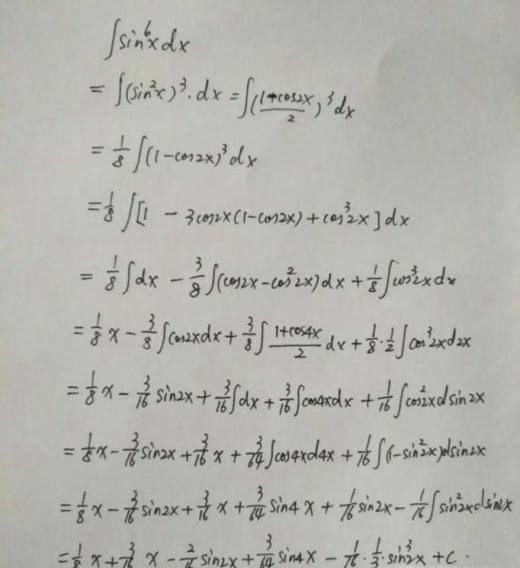 ∫sin⁶x dx
= ∫(sin²x)³·dx = ∫((1+cos2x)/2)³dx
= 1/8 ∫(1-cos2x)³dx
= 1/8 ∫[1 - 3cos2x(1-cos2x) + cos³2x]dx
= 1/8 ∫dx - 3/8 ∫(cos2x-cos²2x)dx + 1/8 ∫cos³2xdx
= 1/8 x - 3/8 ∫cos2xdx + 3/8 ∫(1+cos4x)/2 dx + 1/8·1/2 ∫cos³2xd2x
= 1/8 x - 3/16 sin2x + 3/16 ∫dx + 3/16 ∫cos4xdx + 1/16 ∫cos²2xdsin2x
= 1/8 x - 3/16 sin2x + 3/16 x + 3/64 ∫cos4xd4x + 1/16 ∫(1-sin²2x)dsin2x
= 1/8 x - 3/16 sin2x + 3/16 x + 3/64 sin4x + 1/16 sin2x - 1/16 ∫sin²2xdsin2x
= 1/8 x + 3/16 x - 2/16 sin2x + 3/64 sin4x - 1/16·1/3·sin³2x + C.